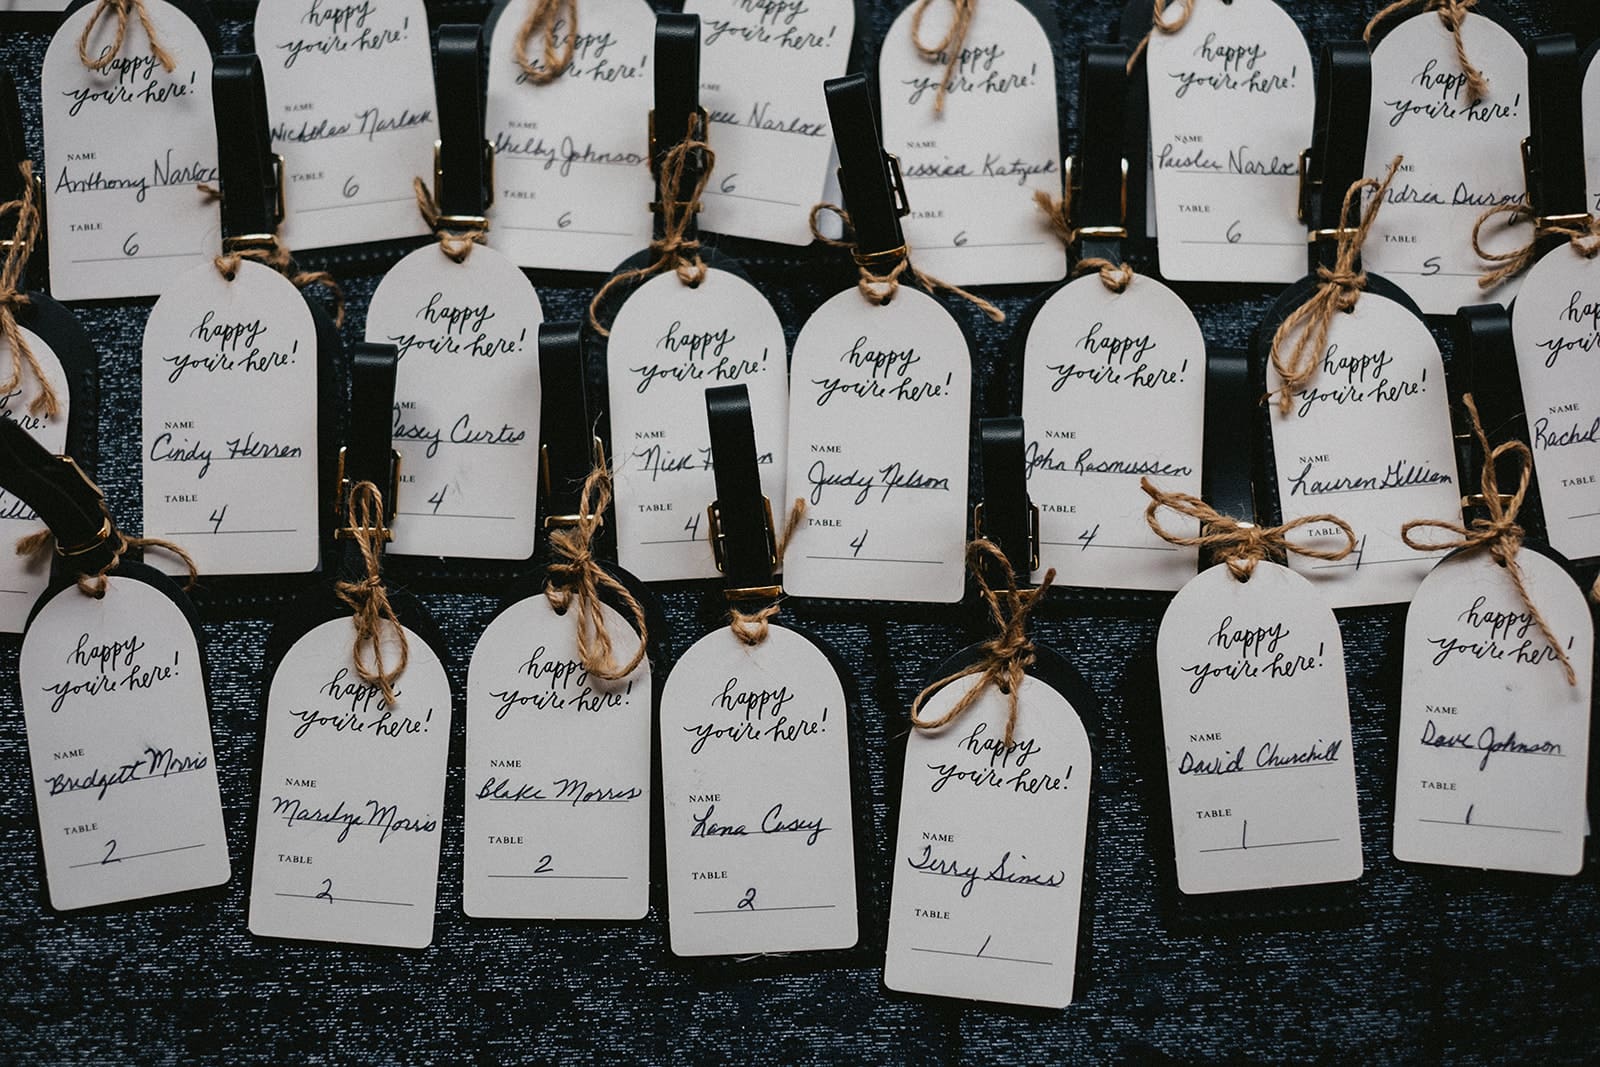 happy
you're here!
NAME
Anthony
TABLE
6
happy
you're here!
NAME
Nicholas Narlock
TABLE
6
happy
you're here!
NAME
Shelby Johnson
TABLE
6
happy
you're here!
Narlock
6
happy
you're here!
Katzuk
TABLE
6
happy
you're here!
NAME
TABLE
6
happy
you're here!
TABLE
5
happy
you're here!
NAME
Cindy Herren
TABLE
4
happy
you're here!
Casey Curtis
4
happy
you're here!
NAME
Nick
TABLE
4
happy
you're here!
NAME
Judy Nelson
TABLE
4
happy
you're here!
NAME
John Rasmussen
TABLE
4
happy
you're here!
NAME
Lauren Gilliam
TABLE
4
NAME
Rachel
TABLE
happy
you're here!
NAME
Bridgett Morris
TABLE
2
happy
you're here!
NAME
Marilyn Morris
TABLE
2
happy
you're here!
NAME
Blake Morris
TABLE
2
happy
you're here!
NAME
Lana Casey
TABLE
2
happy
you're here!
NAME
Terry Sines
TABLE
1
happy
you're here!
NAME
David Churchill
TABLE
1
happy
you're here!
NAME
Dave Johnson
TABLE
1